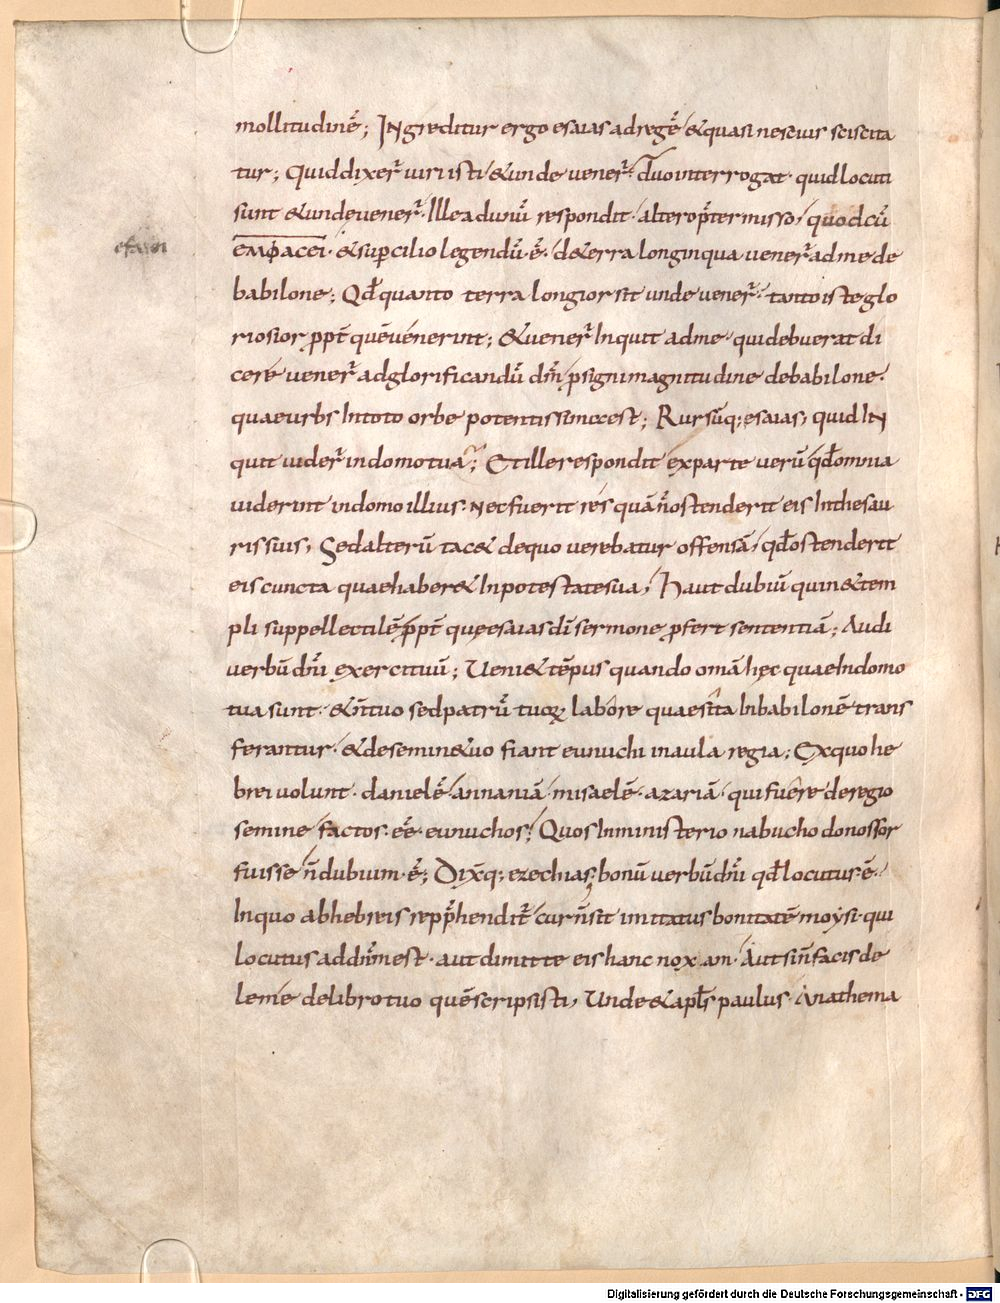 mollitudinē; Ingreditur ergo esaias adregē &quasi nescius sciscita
tur; Quiddixer̄ uiri isti &unde uener̄· duo interrogat· quid locuti
sunt &unde uener̄· Ille adunū respondit· altero p̄termisso, quodcū
efasin
ΕΜΦΑCΕΙ· &supcilio legendū·ē· d&erra longinqua uener̄ adme de
babilone; Qđ quanto terra longior sit unde uener̄· tanto iste glo
riosior ppt̄ quē uenerint; &uener̄ Inquit adme· qui debuerat di
cere uener̄ adglorificandū dn̄m psigni magnitudine debabilone·
quae urbs Intoto orbe potentissima est; Rursūq; esaias, quid IN
quit uider̄ indomo tua; Et ille respondit exparte uerū qđ omnia
uiderint indomo illius· nec fuerit res quā n̄ ostenderit eis Inthesau
ris suis, Sed alterū tac& dequo uerebatur offensā, qđ ostenderit
eis cuncta quae haber& Inpotestate sua, Haut dubiū quin &tem
pli suppellectilē ppt̄ quę esaias dī sermone pfert sententiā; Audi
uerbū dn̄i exercituū; Ueni& tēpus quando omā hęc quae Indomo
tua sunt· &n̄ tuo sed patrū tuoꝝ labore quaesita Inbabilonē trans
ferantur· &desemine tuo fiant eunuchi inaula regia; Exquo he
brei uolunt· danielē· annaniā· misaelē· azariā· qui fuere deregio
semine factos· eē· eunuchos; Quos Inministerio nabuchodonossor
fuisse n̄ dubium·ē; Dix̄q; ezechias, bonū uerbū dn̄i qđ locutus ē·
Inquo ab hebreis repp̄hendit̄ cur n̄ sit imitatus bonitatē moysi· qui
locutus ad dn̄m est· aut dimitte eis hanc noxam· Aut si n̄ facis de
leme delibro tuo quē scripsisti, Unde &apl̄s paulus· Anathema
Digitalisierung gefördert durch die Deutsche Forschungsgemeinschaft - DFG